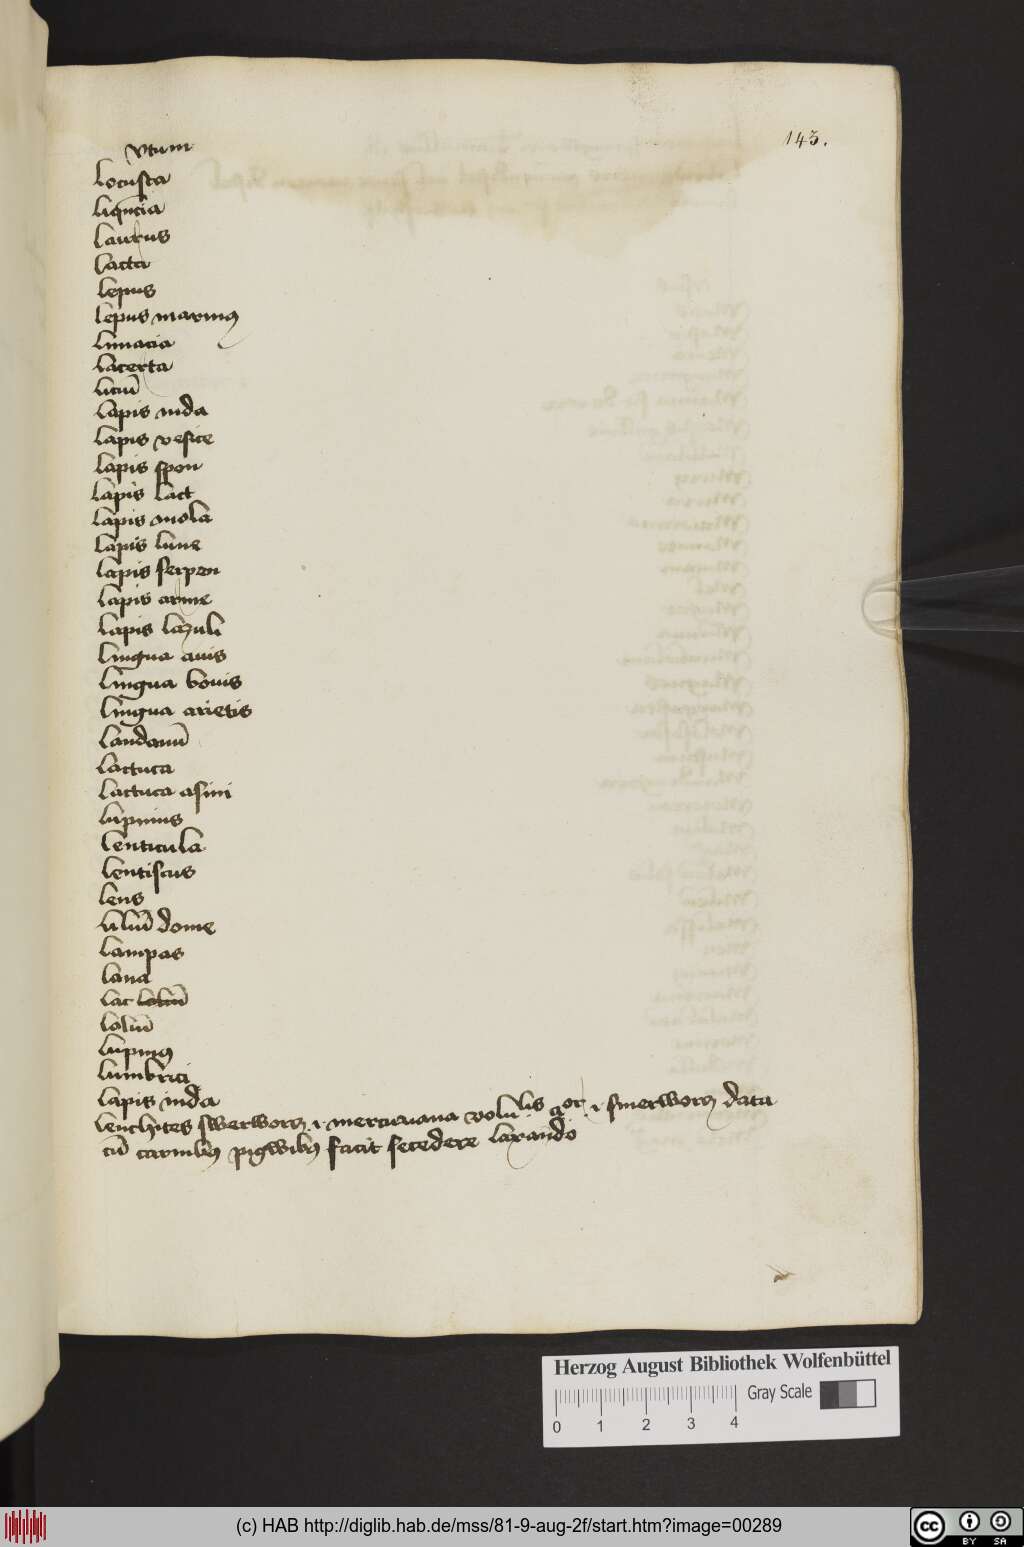 143.
vtum
locusta
liqncia
laurus
lacta
lepus
lepus marinus
limacia
lacerta
liciu̅
lapis inda
lapis vesice
lapis spon
lapis lact
lapis mola
lapis lune
lapis serpen
lapis arme
lapis lazuli
lingua auis
lingua bouis
lingua arietis
landanu̅
lactuca
lactuca asini
lupinus
lenticula
lentiscus
lens
liliu̅ dome
lampas
lana
lac
loliu̅
lupinus
lumbrici
lapis inda
lenchites swerworcz .i. mercuriana volu lis .i. smerworcz data
cu̅ carnibus pigwibus facit secedere laxando
Herzog August Bibliothek Wolfenbüttel
Gray Scale
0 1 2 3 4
(c) HAB http://diglib.hab.de/mss/81-9-aug-2f/start.htm?image=00289
cc BY SA